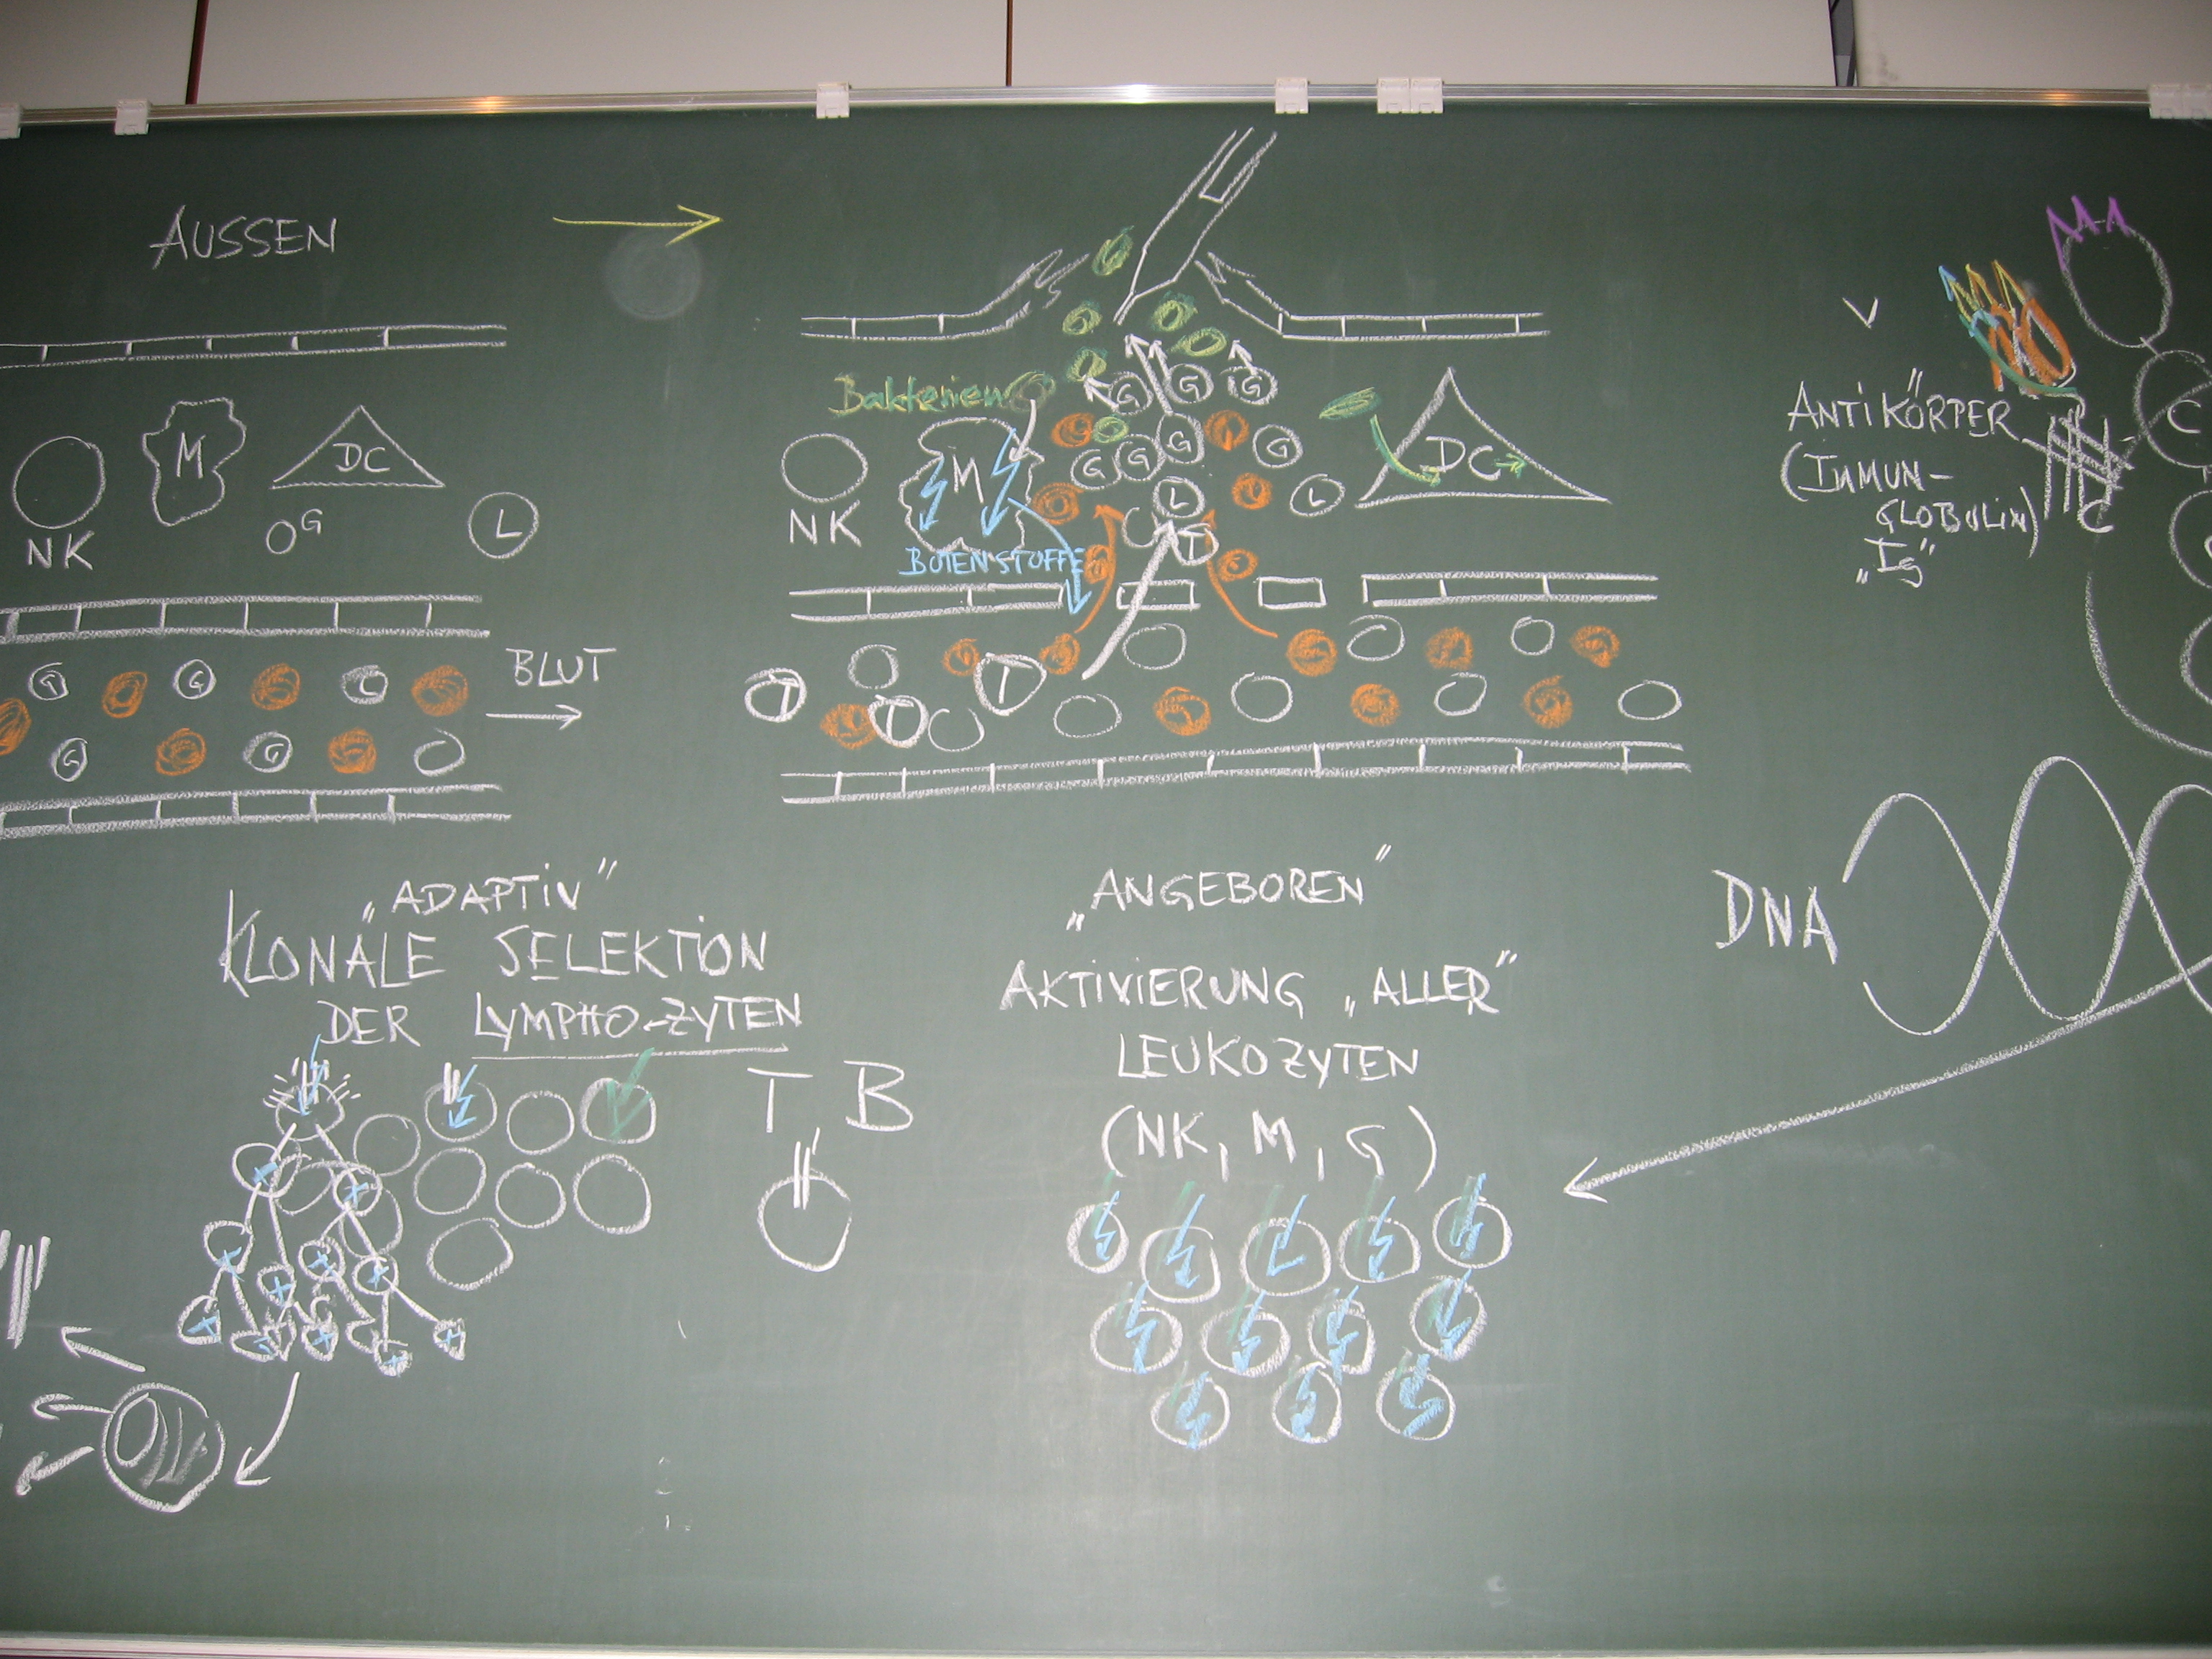 AUSSEN
NK
M
DC
G
L
G
G
L
G
G
BLUT
Bakterien
G
G
G
G
G
G
G
NK
M
L
L
DC
BOTENSTOFFE
T
T
T
T
V
ANTIKÖRPER
(IMMUN-
GLOBULIN)
„Ig“
C
C
„ADAPTIV“
KLONALE SELEKTION
DER LYMPHO-ZYTEN
T B
„ANGEBOREN“
AKTIVIERUNG „ALLER“
LEUKOZYTEN
(NK, M, G)
DNA